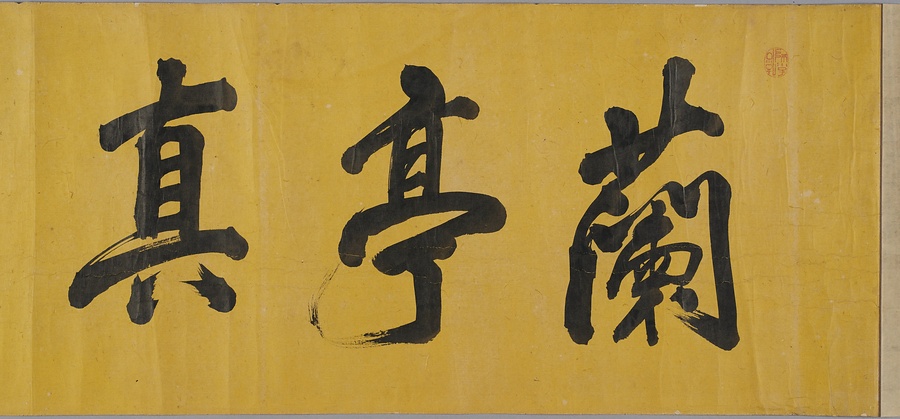 蘭亭真